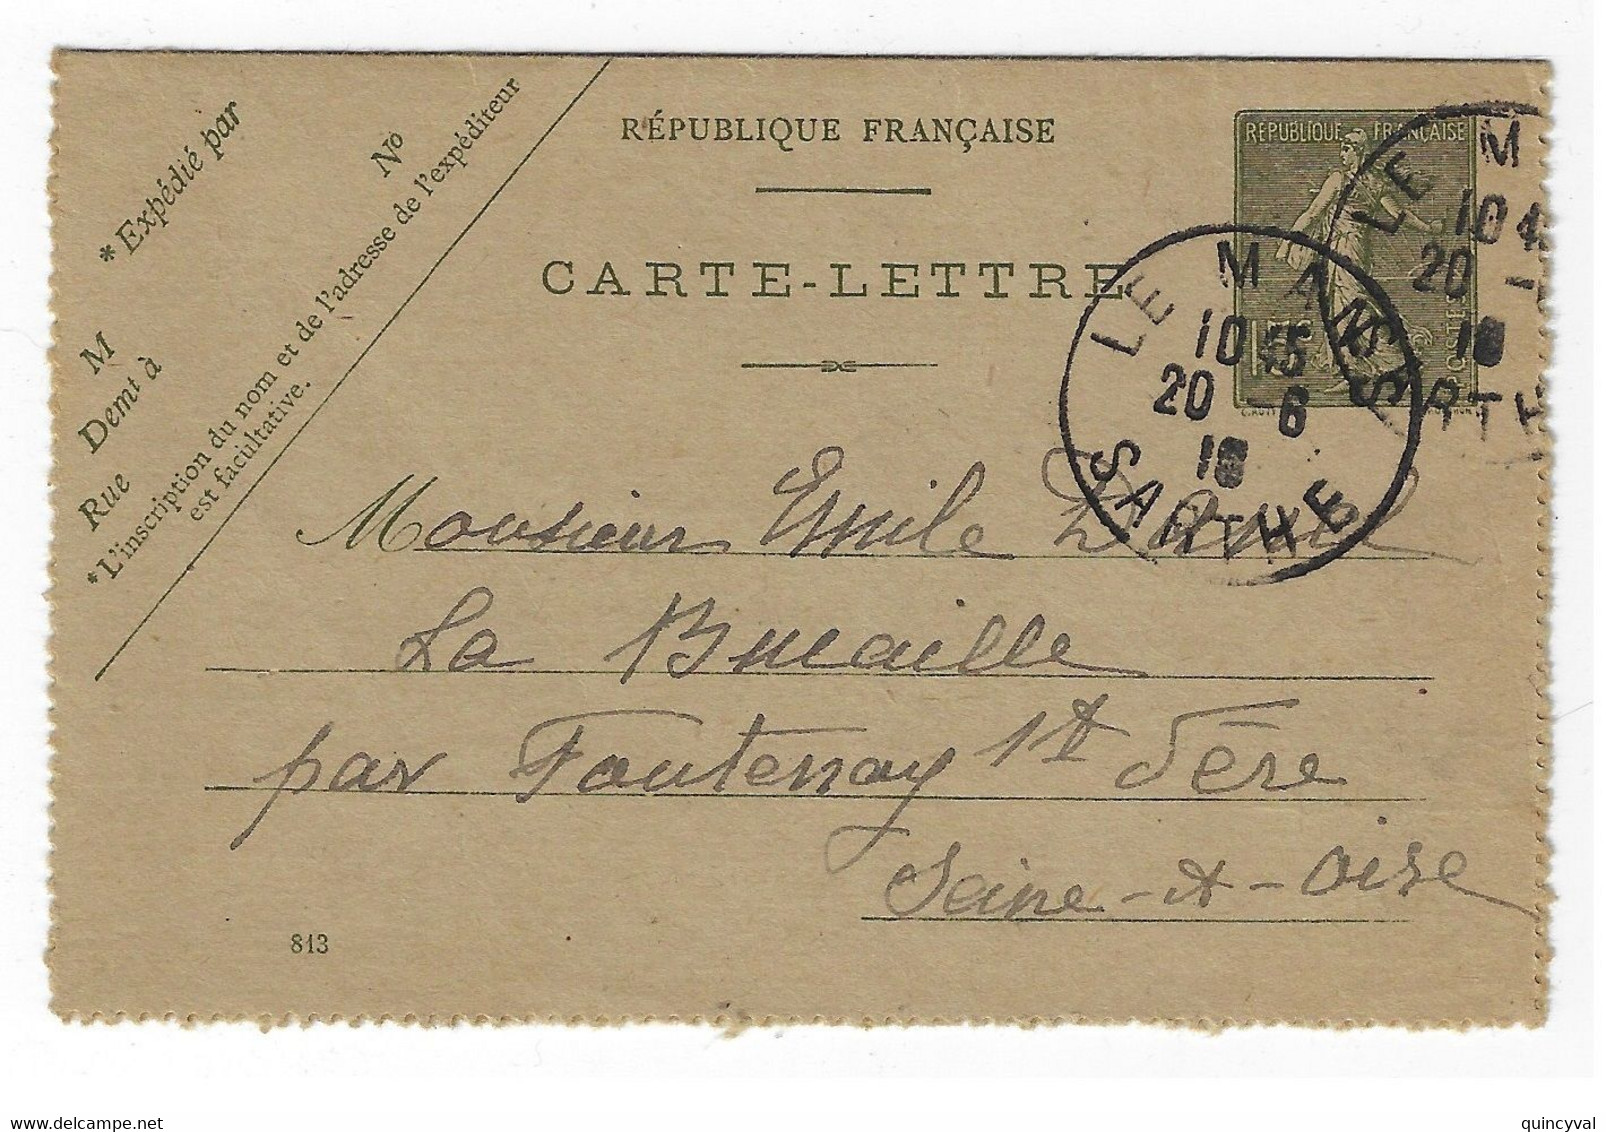 * Expédié par
N°
M
Demt à
Rue
*L'inscription du nom et de l'adresse de l'expéditeur
est facultative.
RÉPUBLIQUE FRANÇAISE
CARTE-LETTRE
RÉPUBLIQUE FRANÇAISE
15c
POSTES
LE M
10 4
20 -
RTH
LE MANS
10 45
20 -6
SARTHE
Monsieur Emile
La Bucaille
par Fontenay St Père
Seine-et-Oise
813
delcampe.net
quincyval